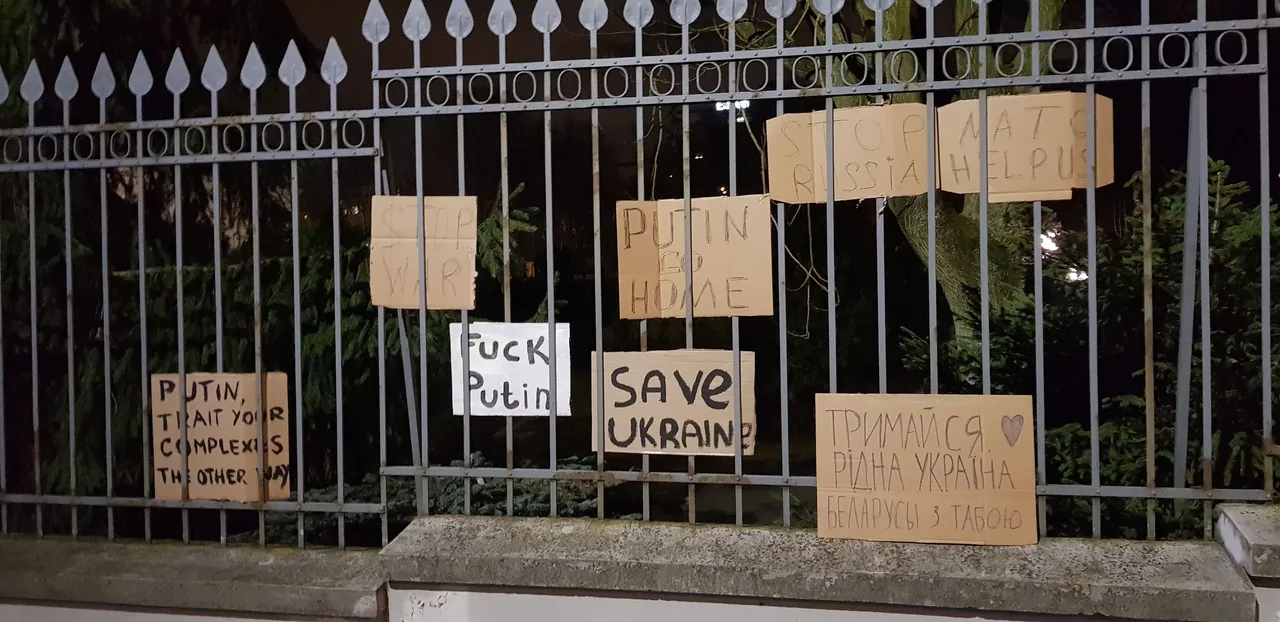 STOP
RUSSIA
NATO
HELP US
STOP
WAR!
PUTIN
GO
HOME
FUCK
Putin
SAVE
UKRAINE
PUTIN,
TRAIT YOUR
COMPLEXES
THE OTHER WAY
ТРИМАЙСЯ
РІДНА УКРАЇНА
БЕЛАРУСЫ З ТАБОЮ